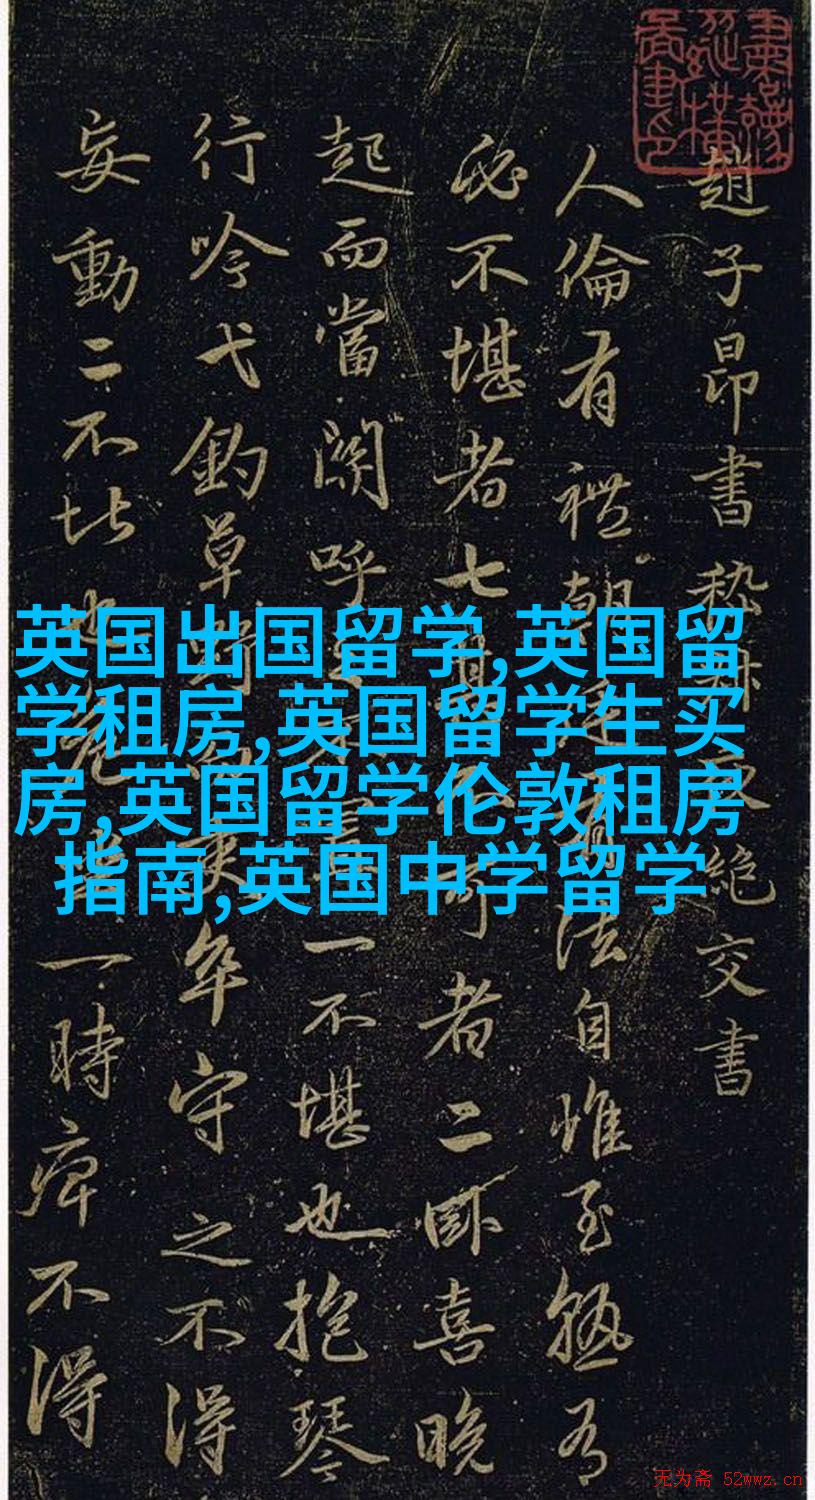 趙子昂書嵇叔夜絕交書
人倫有禮朝廷有法自惟至熟有
必不堪者七甚不可者二臥喜晚
起而當關呼之不置一不堪也抱琴
行吟弋釣草野而吏卒守之不得
妄動二不堪也危坐一時痺不得
英国出国留学,英国留
学租房,英国留学生买
房,英国留学伦敦租房
指南,英国中学留学
无为斋 52wwz.cn